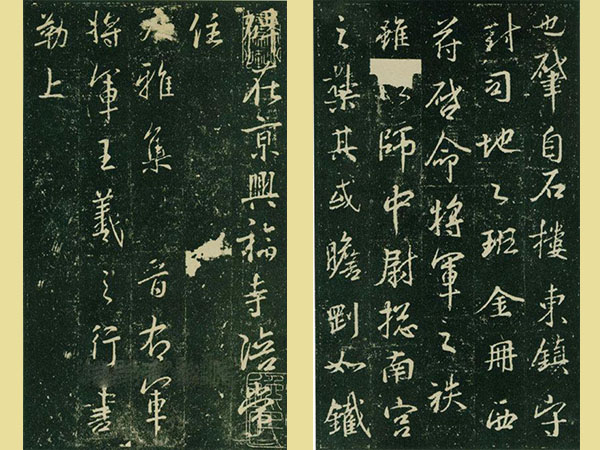 也肇自石樓東鎮守
封司地之班金冊西
苻啓命將軍之祑
雖以師中尉揔南宮
之禁其或膽剛如鐵
碑在京興福寺陪常
住
大雅集 晉右軍
將軍王羲之行書
勒上